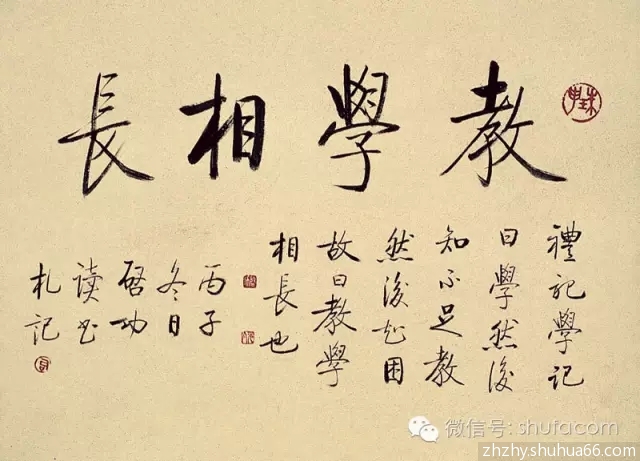 教學相長
禮記學記
曰學然後
知不足教
然後知困
故曰教學
相長也
丙子
冬日
啓功
读书
札記
微信号: shufacom
zhzhy.shuhua66.com